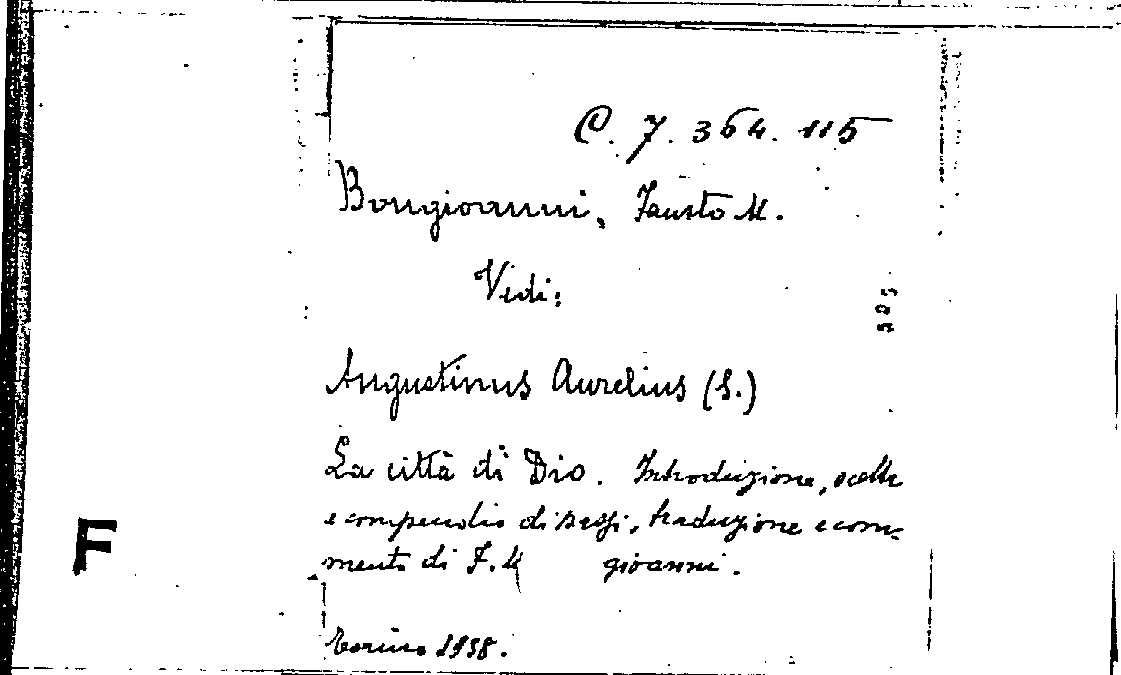 C. 7. 364. 115
Bongioanni, Fausto M.
Vedi:
505
Augustinus Aurelius (S.)
La città di Dio. Introduzione, scelta
e compendio di passi, traduzione e com-
mento di F. M gioanni.
F
Torino 1938.